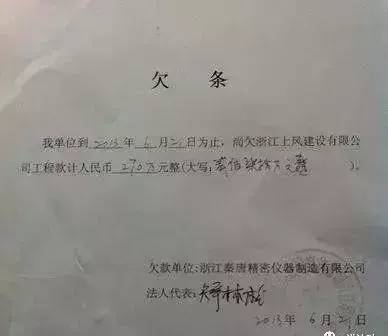 欠 条
我单位到 2013 年 6 月 21 日为止,尚欠浙江上风建设有限公
司工程款计人民币 270万元整(大写: 贰佰柒拾万元整 )。
欠款单位:浙江秦唐精密仪器制造有限公司
法人代表:
2013年6月21